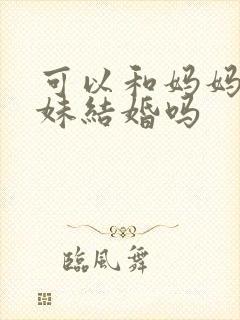 可以和妈妈
妹結婚吗
臨風舞